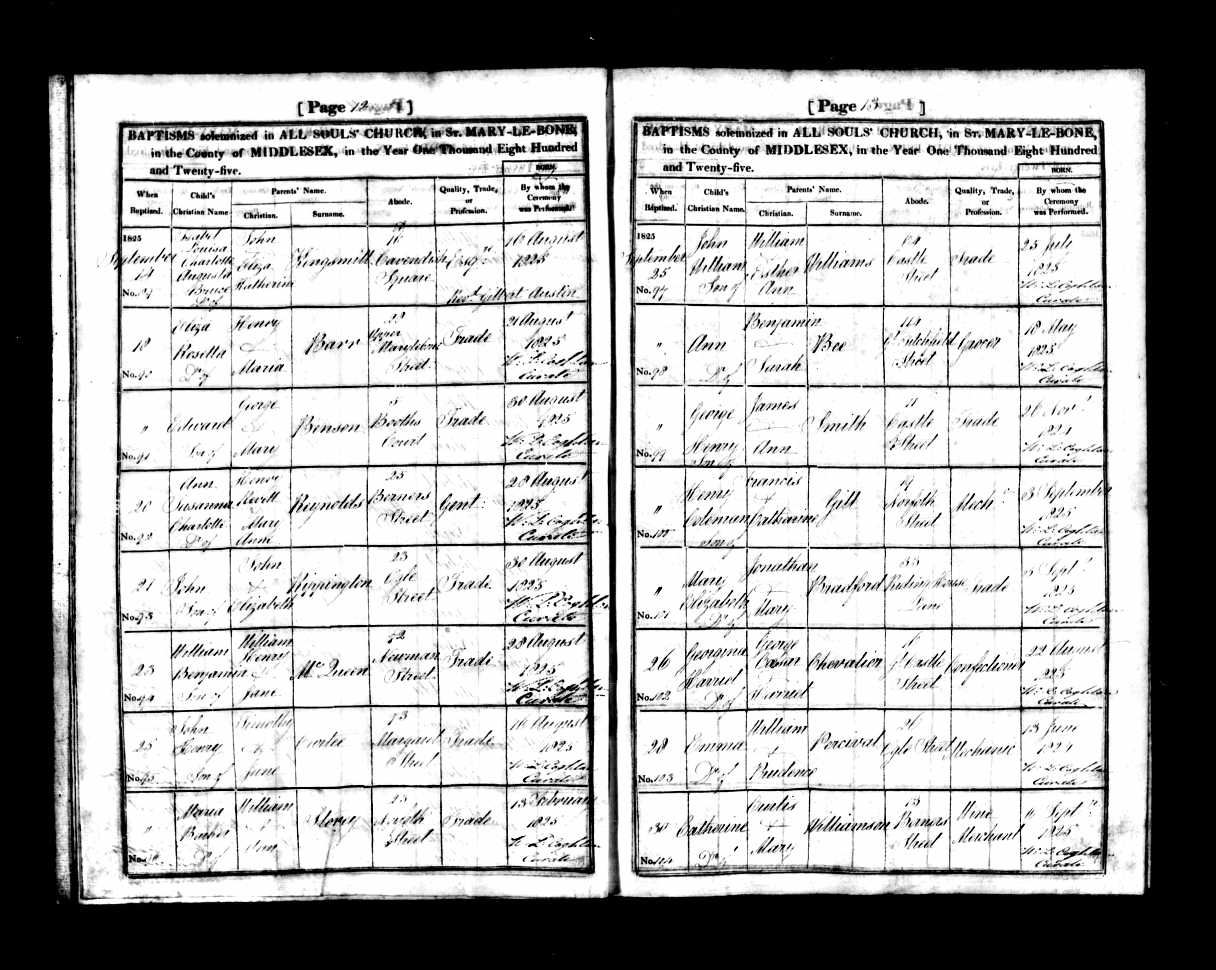 [ Page 12 ]
BAPTISMS solemnized in ALL SOULS' CHURCH, in St. MARY-LE-BONE,
in the County of MIDDLESEX, in the Year One Thousand Eight Hundred
and Twenty-five.
BORN.
When Baptized.
Child's Christian Name
Parents' Name.
Christian.
Surname.
Abode.
Quality, Trade, or Profession.
By whom the Ceremony was Performed.
1825
September
14
Isabel
Louisa
Charlotte
Augusta
Bruce
Dr of
John
Eliza
Katherine
Kingsmill
Cavendish
Square
Esqre
16 August
1825
Revd Gilbert Austin
18
No. 90
Eliza
Rosetta
Dr of
Henry
Maria
Barr
Upper
Marylebone
Street
Trade
21 August
1825
Curate
"
No. 91
Edward
Son of
George
&
Mary
Benson
5
Booths
Court
Trade
30 August
1825
Curate
20
No. 92
Ann
Susanna
Charlotte
Dr of
Henry
Revett
Mary
Anne
Reynolds
25
Berners
Street
Gent:
28 August
1825
Curate
21
No. 93
John
Son of
John
&
Elizabeth
23
Ogle
Street
Trade
30 August
1825
Curate
23
No. 94
William
Benjamin
Son of
William
Henry
&
Jane
Mc Queen
72
Newman
Street
Trade
23 August
1825
Curate
25
No. 95
John
Henry
Son of
Timothy
&
Jane
73
Margaret
Street
Trade
16 August
1825
Curate
"
No.
Maria
Dr of
William
&
Ann
Storey
23
North
Street
Trade
13 February
1825
Curate
[ Page 13 ]
BAPTISMS solemnized in ALL SOULS' CHURCH, in St. MARY-LE-BONE,
in the County of MIDDLESEX, in the Year One Thousand Eight Hundred
and Twenty-five.
BORN.
When Baptized.
Child's Christian Name.
Parents' Name.
Christian.
Surname.
Abode.
Quality, Trade, or Profession.
By whom the Ceremony was Performed.
1825
September
25
No. 97
John
William
Son of
William
&
Esther
Ann
Williams
Castle
Street
Trade
25 July
1825
Curate
"
No. 98
Ann
Dr of
Benjamin
&
Sarah
Bee
Gt Titchfield
Street
Grocer
18 May
1825
Curate
"
No. 99
George
Henry
Son of
James
Ann
Smith
Castle
Street
Trade
1824
Curate
"
No. 100
Henry
Coleman
Son of
Francis
&
Catharine
Gill
Norfolk
Street
Mech:
3 September
1825
Curate
"
No. 101
Mary
Elizabeth
Dr of
Jonathan
&
Mary
Bradford
Riding House
Lane
Trade
5 Septr
1825
Curate
26
No. 102
Georgina
Harriet
Dr of
George
&
Harriet
Chevalier
Gt Castle
Street
Confectioner
22 August
1825
Curate
28
No. 103
Emma
Dr of
William
&
Prudence
Percival
26
Ogle Street
Mechanic
13 June
1824
Curate
30
No. 104
Catherine
Dr of
Curtis
&
Mary
Williamson
Berners
Street
Wine
Merchant
Septr
1825
Curate